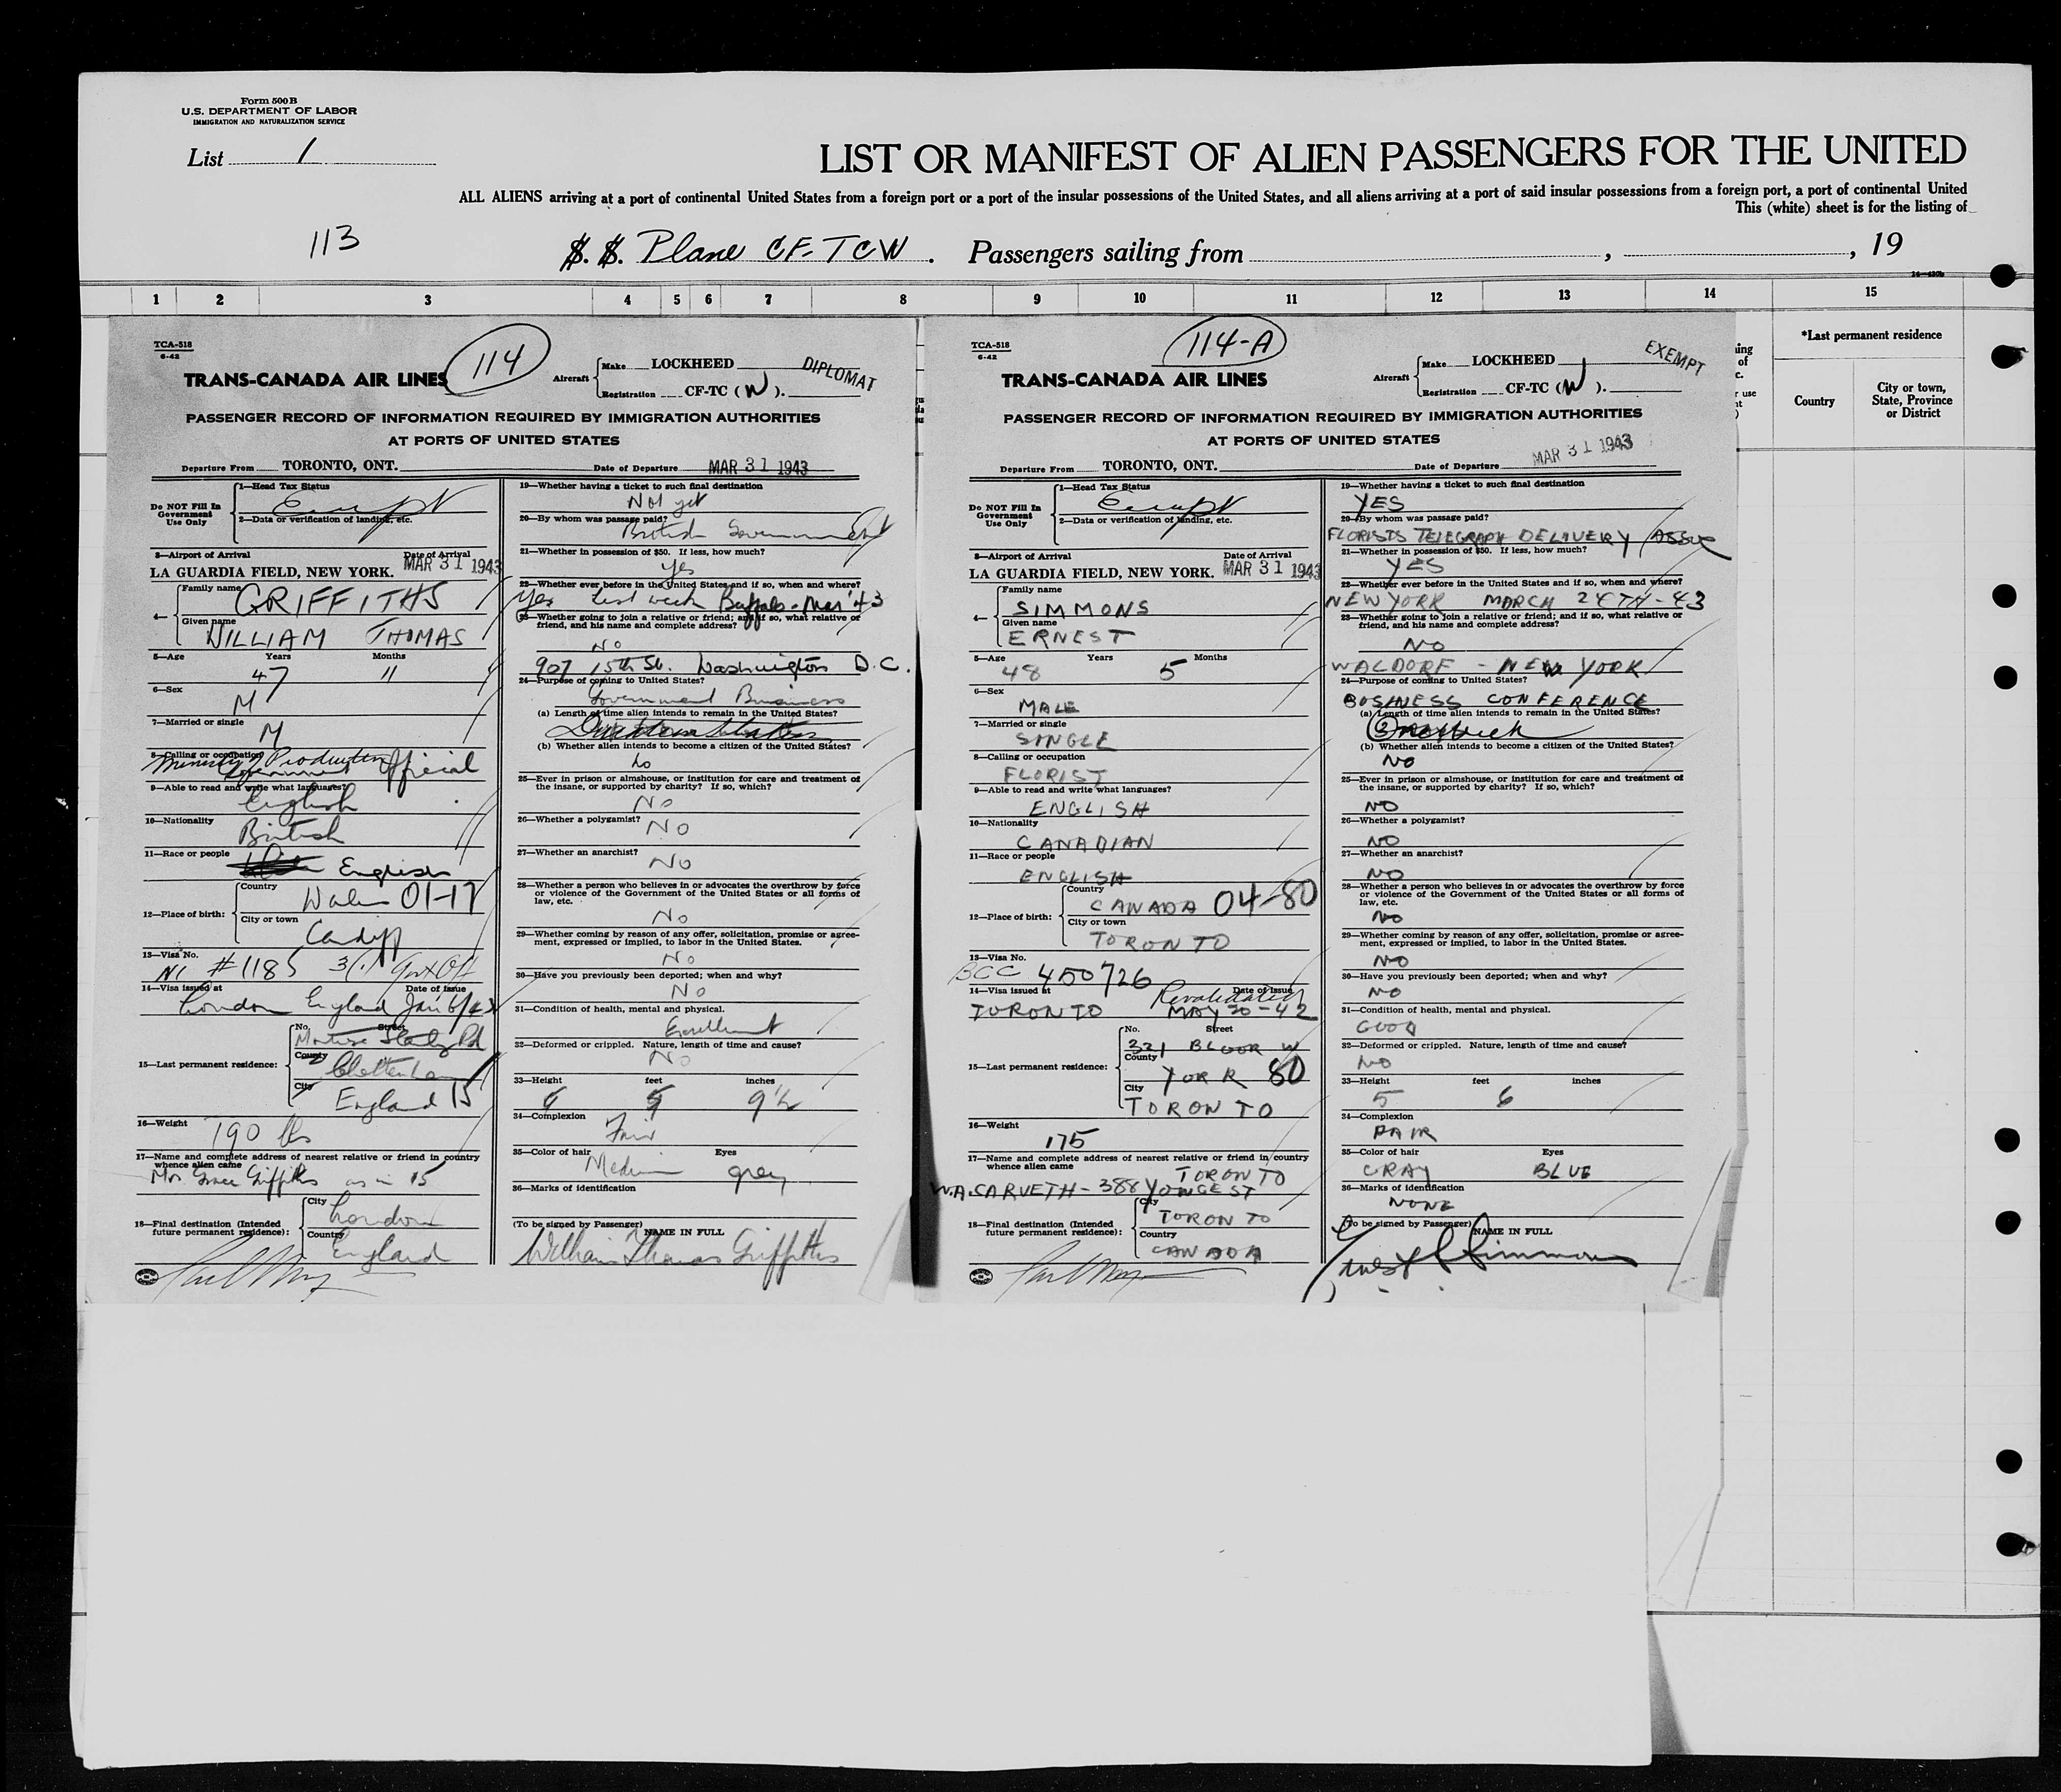 Form 500 B
U.S. DEPARTMENT OF LABOR
IMMIGRATION AND NATURALIZATION SERVICE
List 1
LIST OR MANIFEST OF ALIEN PASSENGERS FOR THE UNITED
ALL ALIENS arriving at a port of continental United States from a foreign port or a port of the insular possessions of the United States, and all aliens arriving at a port of said insular possessions from a foreign port, a port of continental United
This (white) sheet is for the listing of
113
S. S. Plane CF-TCW. Passengers sailing from , , 19
1 2 3 4 5 6 7 8 9 10 11 12 13 14 15
*Last permanent residence
Country
City or town, State, Province or District
TCA-518
6-42
114
TRANS-CANADA AIR LINES
Aircraft
Make LOCKHEED
Registration CF-TC (W).
DIPLOMAT
PASSENGER RECORD OF INFORMATION REQUIRED BY IMMIGRATION AUTHORITIES
AT PORTS OF UNITED STATES
Departure From TORONTO, ONT. Date of Departure MAR 31 1943
Do NOT Fill In Government Use Only
1—Head Tax Status
Exempt
2—Data or verification of landing, etc.
3—Airport of Arrival Date of Arrival
LA GUARDIA FIELD, NEW YORK. MAR 31 1943
4— Family name GRIFFITHS
Given name WILLIAM THOMAS
5—Age Years Months
47 11
6—Sex
M
7—Married or single
M
8—Calling or occupation
Ministry of Production
Government Official
9—Able to read and write what languages?
English
10—Nationality
British
11—Race or people
English
12—Place of birth: Country Wales 01-17
City or town Cardiff
13—Visa No.
# 1185 3(1) Govt Off
14—Visa issued at Date of Issue
London England Jan 6/43
15—Last permanent residence: No. Street
County Cheltenham
City England 15
16—Weight
190 lbs
17—Name and complete address of nearest relative or friend in country whence alien came
Mrs. Grace Griffiths as in 15
18—Final destination (Intended future permanent residence): City London
Country England
19—Whether having a ticket to such final destination
Not yet
20—By whom was passage paid?
British Government
21—Whether in possession of $50. If less, how much?
Yes
22—Whether ever before in the United States and if so, when and where?
Yes last week Buffalo - Mar '43
23—Whether going to join a relative or friend; and if so, what relative or friend, and his name and complete address?
No
907 15th St. Washington D.C.
24—Purpose of coming to United States?
Government Business
(a) Length of time alien intends to remain in the United States?
(b) Whether alien intends to become a citizen of the United States?
No
25—Ever in prison or almshouse, or institution for care and treatment of the insane, or supported by charity? If so, which?
No
26—Whether a polygamist?
No
27—Whether an anarchist?
No
28—Whether a person who believes in or advocates the overthrow by force or violence of the Government of the United States or all forms of law, etc.
No
29—Whether coming by reason of any offer, solicitation, promise or agreement, expressed or implied, to labor in the United States.
No
30—Have you previously been deported; when and why?
No
31—Condition of health, mental and physical.
Excellent
32—Deformed or crippled. Nature, length of time and cause?
No
33—Height feet inches
5 9½
34—Complexion
Fair
35—Color of hair Eyes
Medium grey
36—Marks of identification
(To be signed by Passenger) NAME IN FULL
William Thomas Griffiths
TCA-518
6-42
114-A
TRANS-CANADA AIR LINES
Aircraft
Make LOCKHEED
Registration CF-TC (W).
EXEMPT
PASSENGER RECORD OF INFORMATION REQUIRED BY IMMIGRATION AUTHORITIES
AT PORTS OF UNITED STATES
Departure From TORONTO, ONT. Date of Departure MAR 31 1943
Do NOT Fill In Government Use Only
1—Head Tax Status
Exempt
2—Data or verification of landing, etc.
3—Airport of Arrival Date of Arrival
LA GUARDIA FIELD, NEW YORK. MAR 31 1943
4— Family name
SIMMONS
Given name
ERNEST
5—Age Years Months
48 5
6—Sex
MALE
7—Married or single
SINGLE
8—Calling or occupation
FLORIST
9—Able to read and write what languages?
ENGLISH
10—Nationality
CANADIAN
11—Race or people
ENGLISH
12—Place of birth: Country CANADA 04-80
City or town TORONTO
13—Visa No.
BCC 450726
14—Visa issued at Date of Issue
Revalidated
TORONTO MAY 20-42
15—Last permanent residence: No. Street
321 BLOOR W
County YORK 80
City TORONTO
16—Weight
175
17—Name and complete address of nearest relative or friend in country whence alien came
TORONTO
W.A. CARVETH - 388 YONGE ST
18—Final destination (Intended future permanent residence): City TORONTO
Country CANADA
19—Whether having a ticket to such final destination
YES
20—By whom was passage paid?
FLORISTS TELEGRAPH DELIVERY ASSC
21—Whether in possession of $50. If less, how much?
YES
22—Whether ever before in the United States and if so, when and where?
NEW YORK MARCH 24TH-43
23—Whether going to join a relative or friend; and if so, what relative or friend, and his name and complete address?
NO
WALDORF - NEW YORK
24—Purpose of coming to United States?
BUSINESS CONFERENCE
(a) Length of time alien intends to remain in the United States?
One week
(b) Whether alien intends to become a citizen of the United States?
NO
25—Ever in prison or almshouse, or institution for care and treatment of the insane, or supported by charity? If so, which?
NO
26—Whether a polygamist?
NO
27—Whether an anarchist?
NO
28—Whether a person who believes in or advocates the overthrow by force or violence of the Government of the United States or all forms of law, etc.
NO
29—Whether coming by reason of any offer, solicitation, promise or agreement, expressed or implied, to labor in the United States.
NO
30—Have you previously been deported; when and why?
NO
31—Condition of health, mental and physical.
GOOD
32—Deformed or crippled. Nature, length of time and cause?
NO
33—Height feet inches
5 6
34—Complexion
FAIR
35—Color of hair Eyes
GRAY BLUE
36—Marks of identification
NONE
(To be signed by Passenger) NAME IN FULL
Ernest Simmons